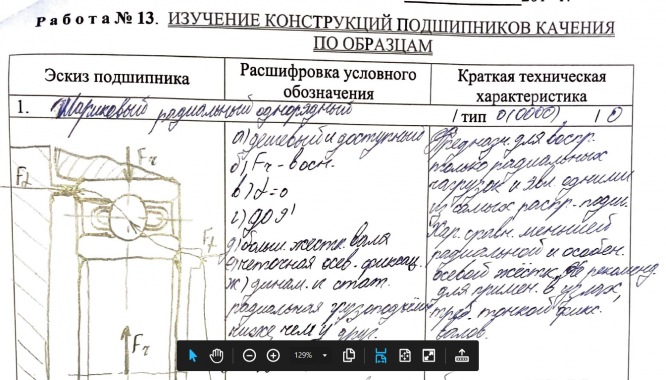 Работа № 13. ИЗУЧЕНИЕ КОНСТРУКЦИЙ ПОДШИПНИКОВ КАЧЕНИЯ
ПО ОБРАЗЦАМ
Эскиз подшипника
Расшифровка условного
обозначения
Краткая техническая
характеристика
1. Шариковый радиальный однорядный / тип 0(0000) / 0
Fr
Fr
а) дешевый и доступный
б) Fr - восн.
в) α=0
г) до 8'
д) больш. жестк. вала
е) неточная осев. фиксац.
ж) динам. и стат.
радиальная грузоподъём
ниже, чем у друг.
Предназн. для воспр.
только радиальных
нагрузок и явл одними
из самых распр. подш.
Хар. сравн. меньшей
радиальной и особен.
осевой жестк. Не рекоменд
для примен. в узлах,
треб. точной фикс.
валов.
129%